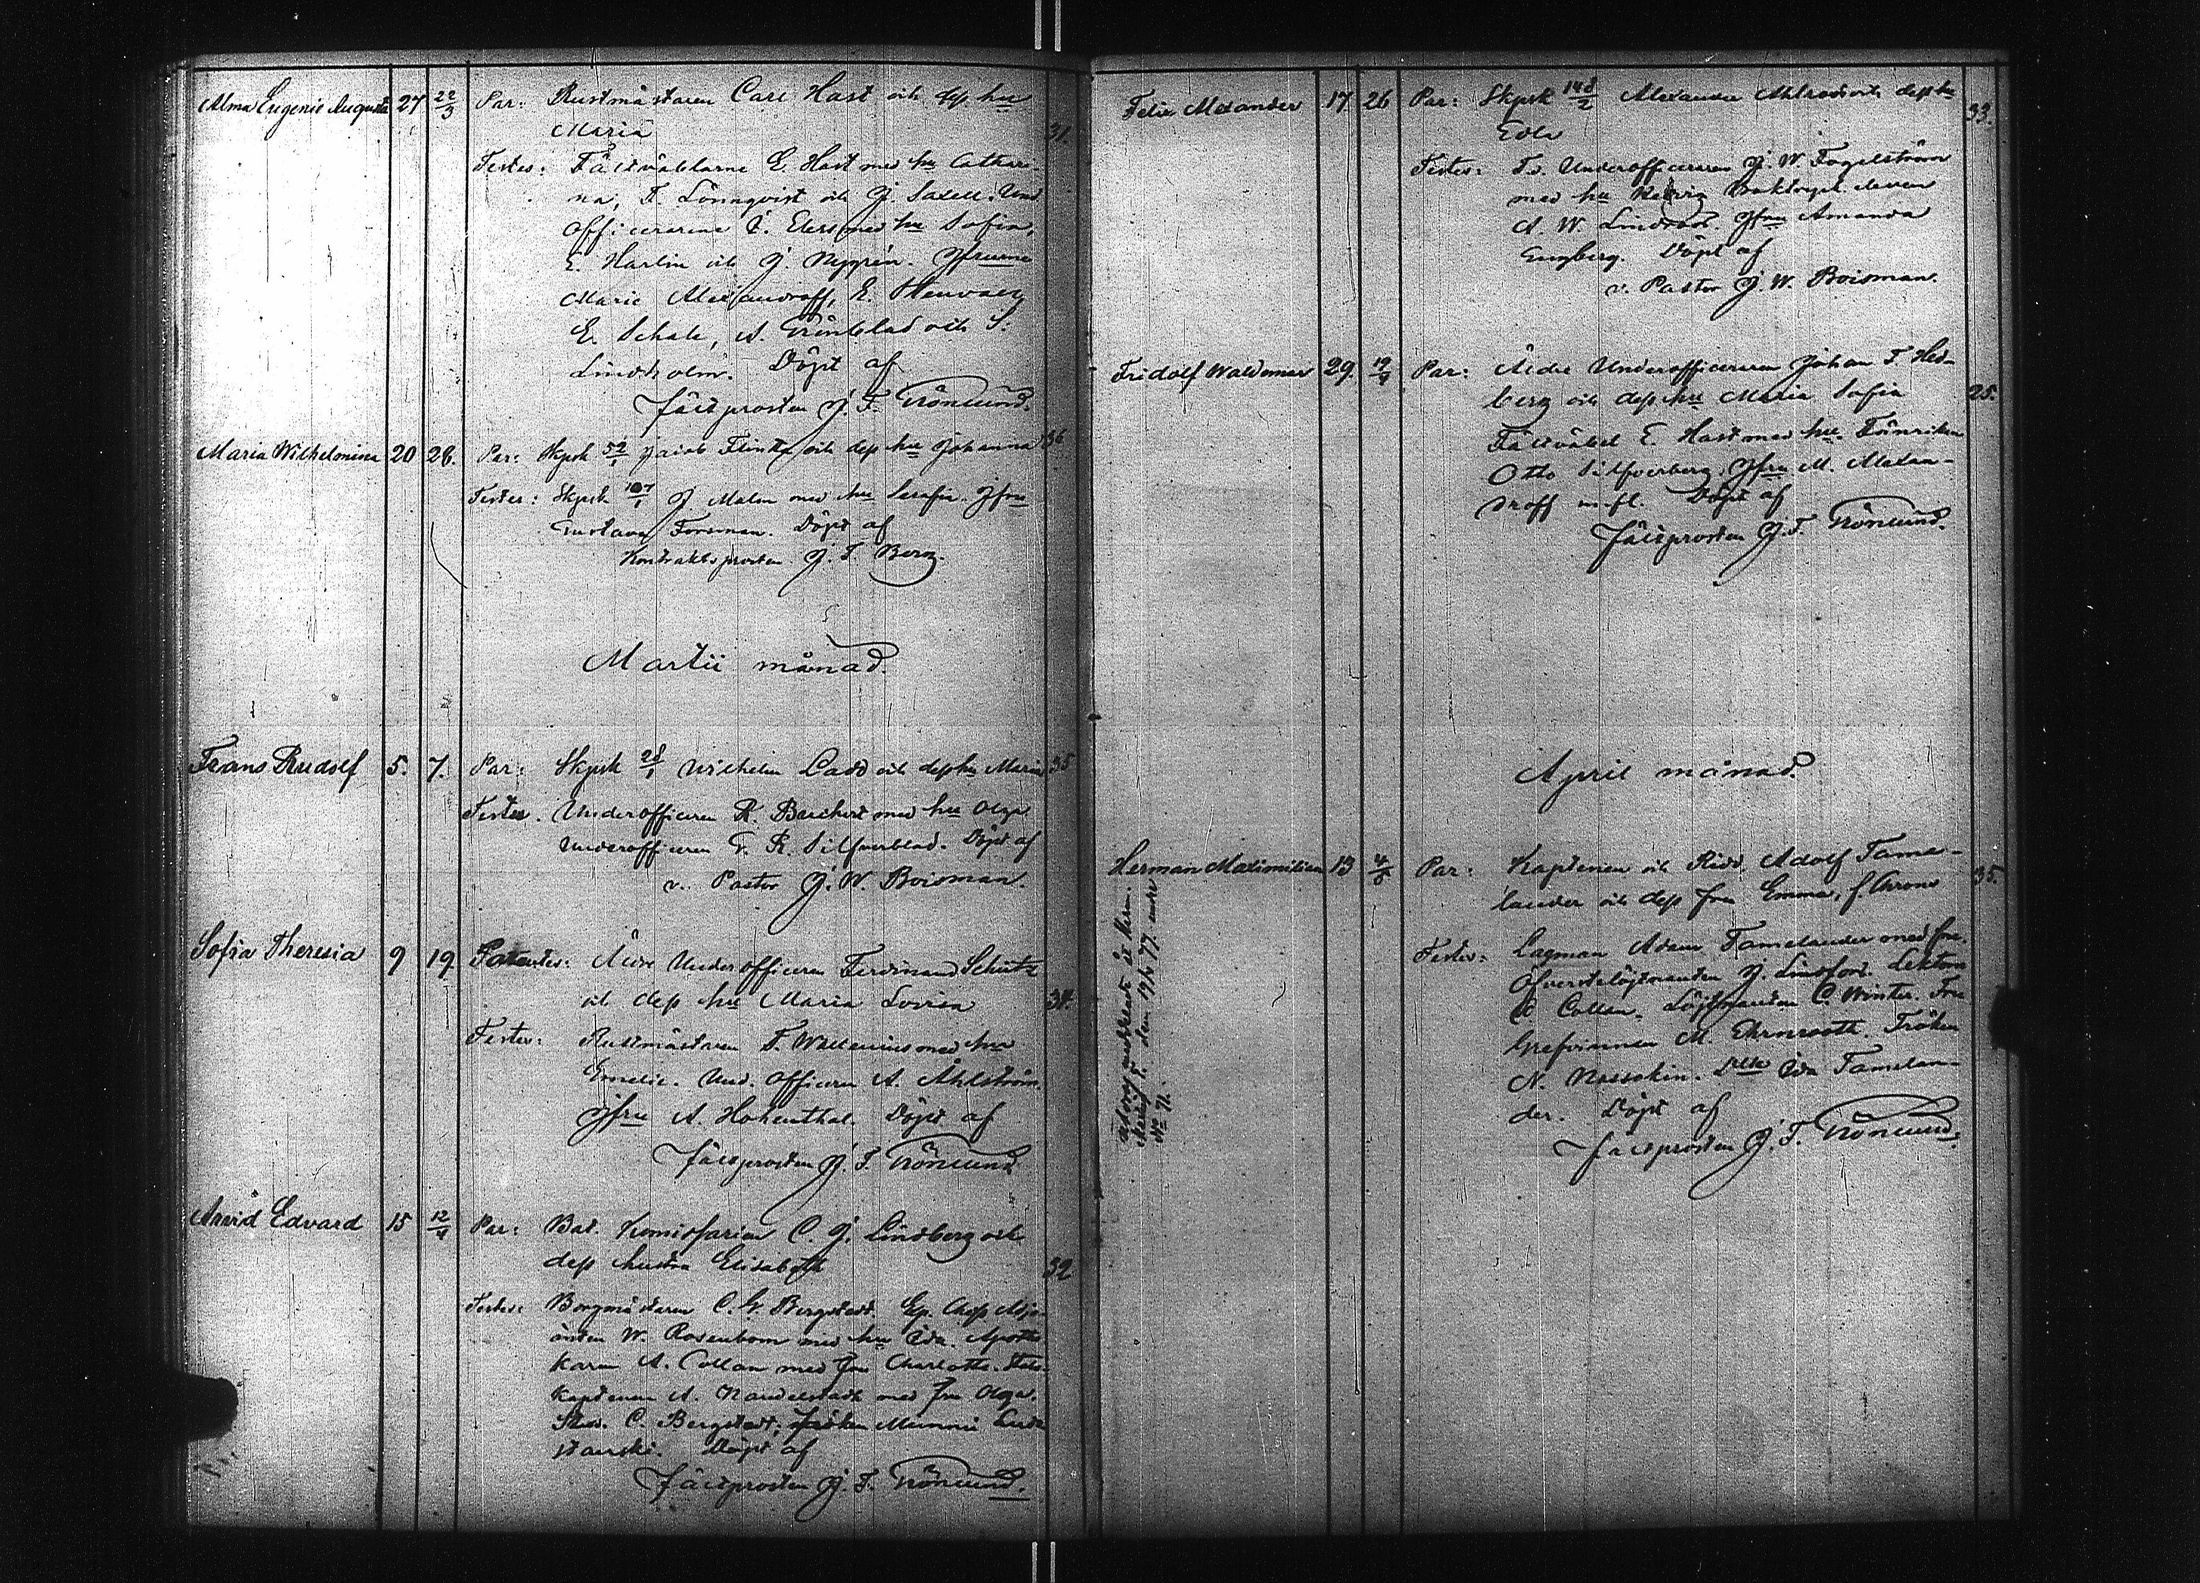 Alma Eugenie Augusta 27 22/3 Par: Rustmästaren Carl Hast och dess hu
Maria 31.
Testes: Fältväblarne E. Hast med hu Cathari-
na, F. Lönnqvist och J. Saxell. Und
officerarne E. Elers med hu Sofia,
E. Harlin och J. Nygrén. Jfruerne
Marie Alexandroff, E.
E. Schale, A. Grönblad och S.
Lindholm. Döpt af
fältprosten J. F. Grönlund.
Maria Wilhelmina 20 28. Par: Skpsk 52/1 Jacob Flinta och dess hu Johanna 36
Testes: Skpsk 107/1 J Malm med hu Serafia. Jfru
Gustava Forsman. Döpt af
Kontraktsprosten J. F. Berg.
Martii månad.
Frans Rudolf 5. 7. Par: Skpsk 28/1 Wilhelm Ladd och dess hu Maria 35
Testes. Underofficeren R. Beichert med hu Olga
Underofficeren G. R. Silfverblad. Döpt af
v. Pastor J. W. Boisman.
Sofia Theresia 9 19 Parentes: Äldre Underofficeren Ferdinand Schütz
och dess hu Maria Lovisa 34.
Testes: Rustmästaren F. Wallenius med hu
Emelie. Und. officeren A. Åhlström.
Jfru A. Hohenthal. Döpt af
fältprosten J. F. Grönlund
Arvid Edvard 15 12/4 Par: Bat. Komissarien C. J. Lindberg och
dess hustru Elisabeth 32
Testes: Borgmästaren C. G. Bergstedt.
W. Rosenbom med hu Ida. Apothe
karen A. Collan med fru Charlotte. Stabs
kaptenen A. Nandelstadt med fru Olga.
Stud. C. Bergstedt, fröken Mimmi
Döpt af
fältprosten J. F. Grönlund.
Felix Alexander 17 26 Par: Skpsk 148/2 Alexander Ahlroos och dess hu
Edla 33.
Testes: F.d. Underofficeren J. W. Fogelström
med hu Hedvig
A. W. Lindroos. Jfru Amanda
Engberg. Döpt af
v. Pastor J. W. Boisman.
Fridolf Waldemar 29. 19/4 Par: Äldre Underofficeren Johan F. Hed-
berg och dess hu Maria Sofia 25.
Fältväbel E. Hast med hu. Fänriken
Otto Silfverberg, Jfru M. Alexan-
droff m.fl. Döpt af
fältprosten J. F. Grönlund.
April månad.
Herman Maximilian 13 4/5 Par: Kaptenen och Ridd. Adolf Tame-
lander och dess fru Emma, f. Chrons 35.
Testes: Lagman Adam Tamelander med fru.
Öfverstelöjtnanten J. Lindfors. Lektorn
Collan. Löjtnanten C. Winter. Fru
Grefvinnan M. Ehrnrooth. Fröken
N. Nassokin. Dlle Ida Tamelan-
der. Döpt af
fältprosten J. F. Grönlund.
meddeladt åt Herm.
den 19/2 77. under
No 71.